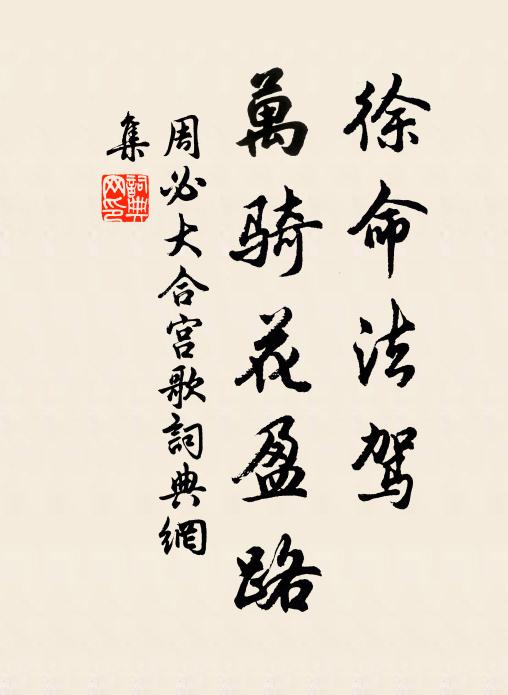 徐命法駕
萬騎花盈路
周必大合宮歌詞典網
集
詞典網印